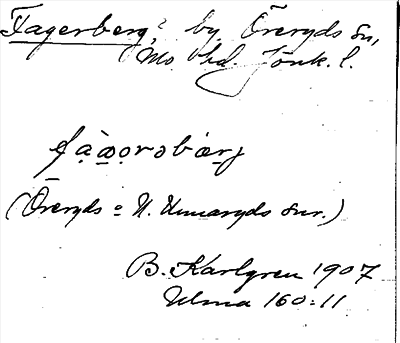 Fagerberg, by, Öreryds sn,
Mo hd. Jönk. l.
(Öreryds o N. Unnaryds snr.)
B. Karlgren 1907
Ulma 160:11